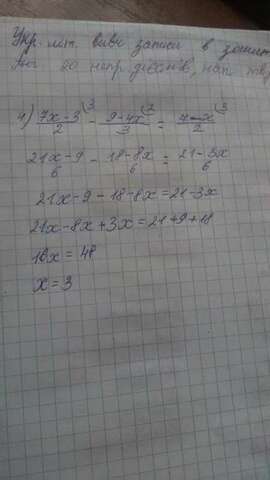 Укр. літ. вивч. записи в зошиті
4) 7x-3/2 ⁽³ - 9-4x/3 ⁽² = 7-x/2 ⁽³
21x-9/6 - 18-8x/6 = 21-3x/6
21x-9-18-8x=21-3x
21x-8x+3x=21+9+18
16x=48
x=3